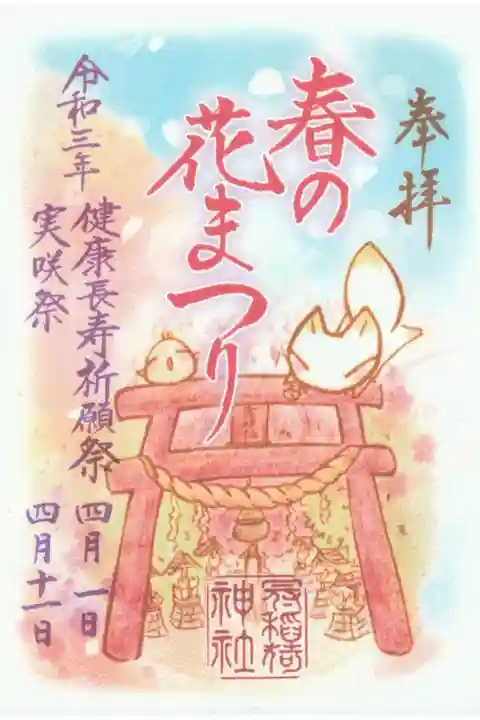 奉拝
春の
花まつり
令和三年
健康長寿祈願祭 四月一日
実咲祭 四月十一日
稲荷
神社